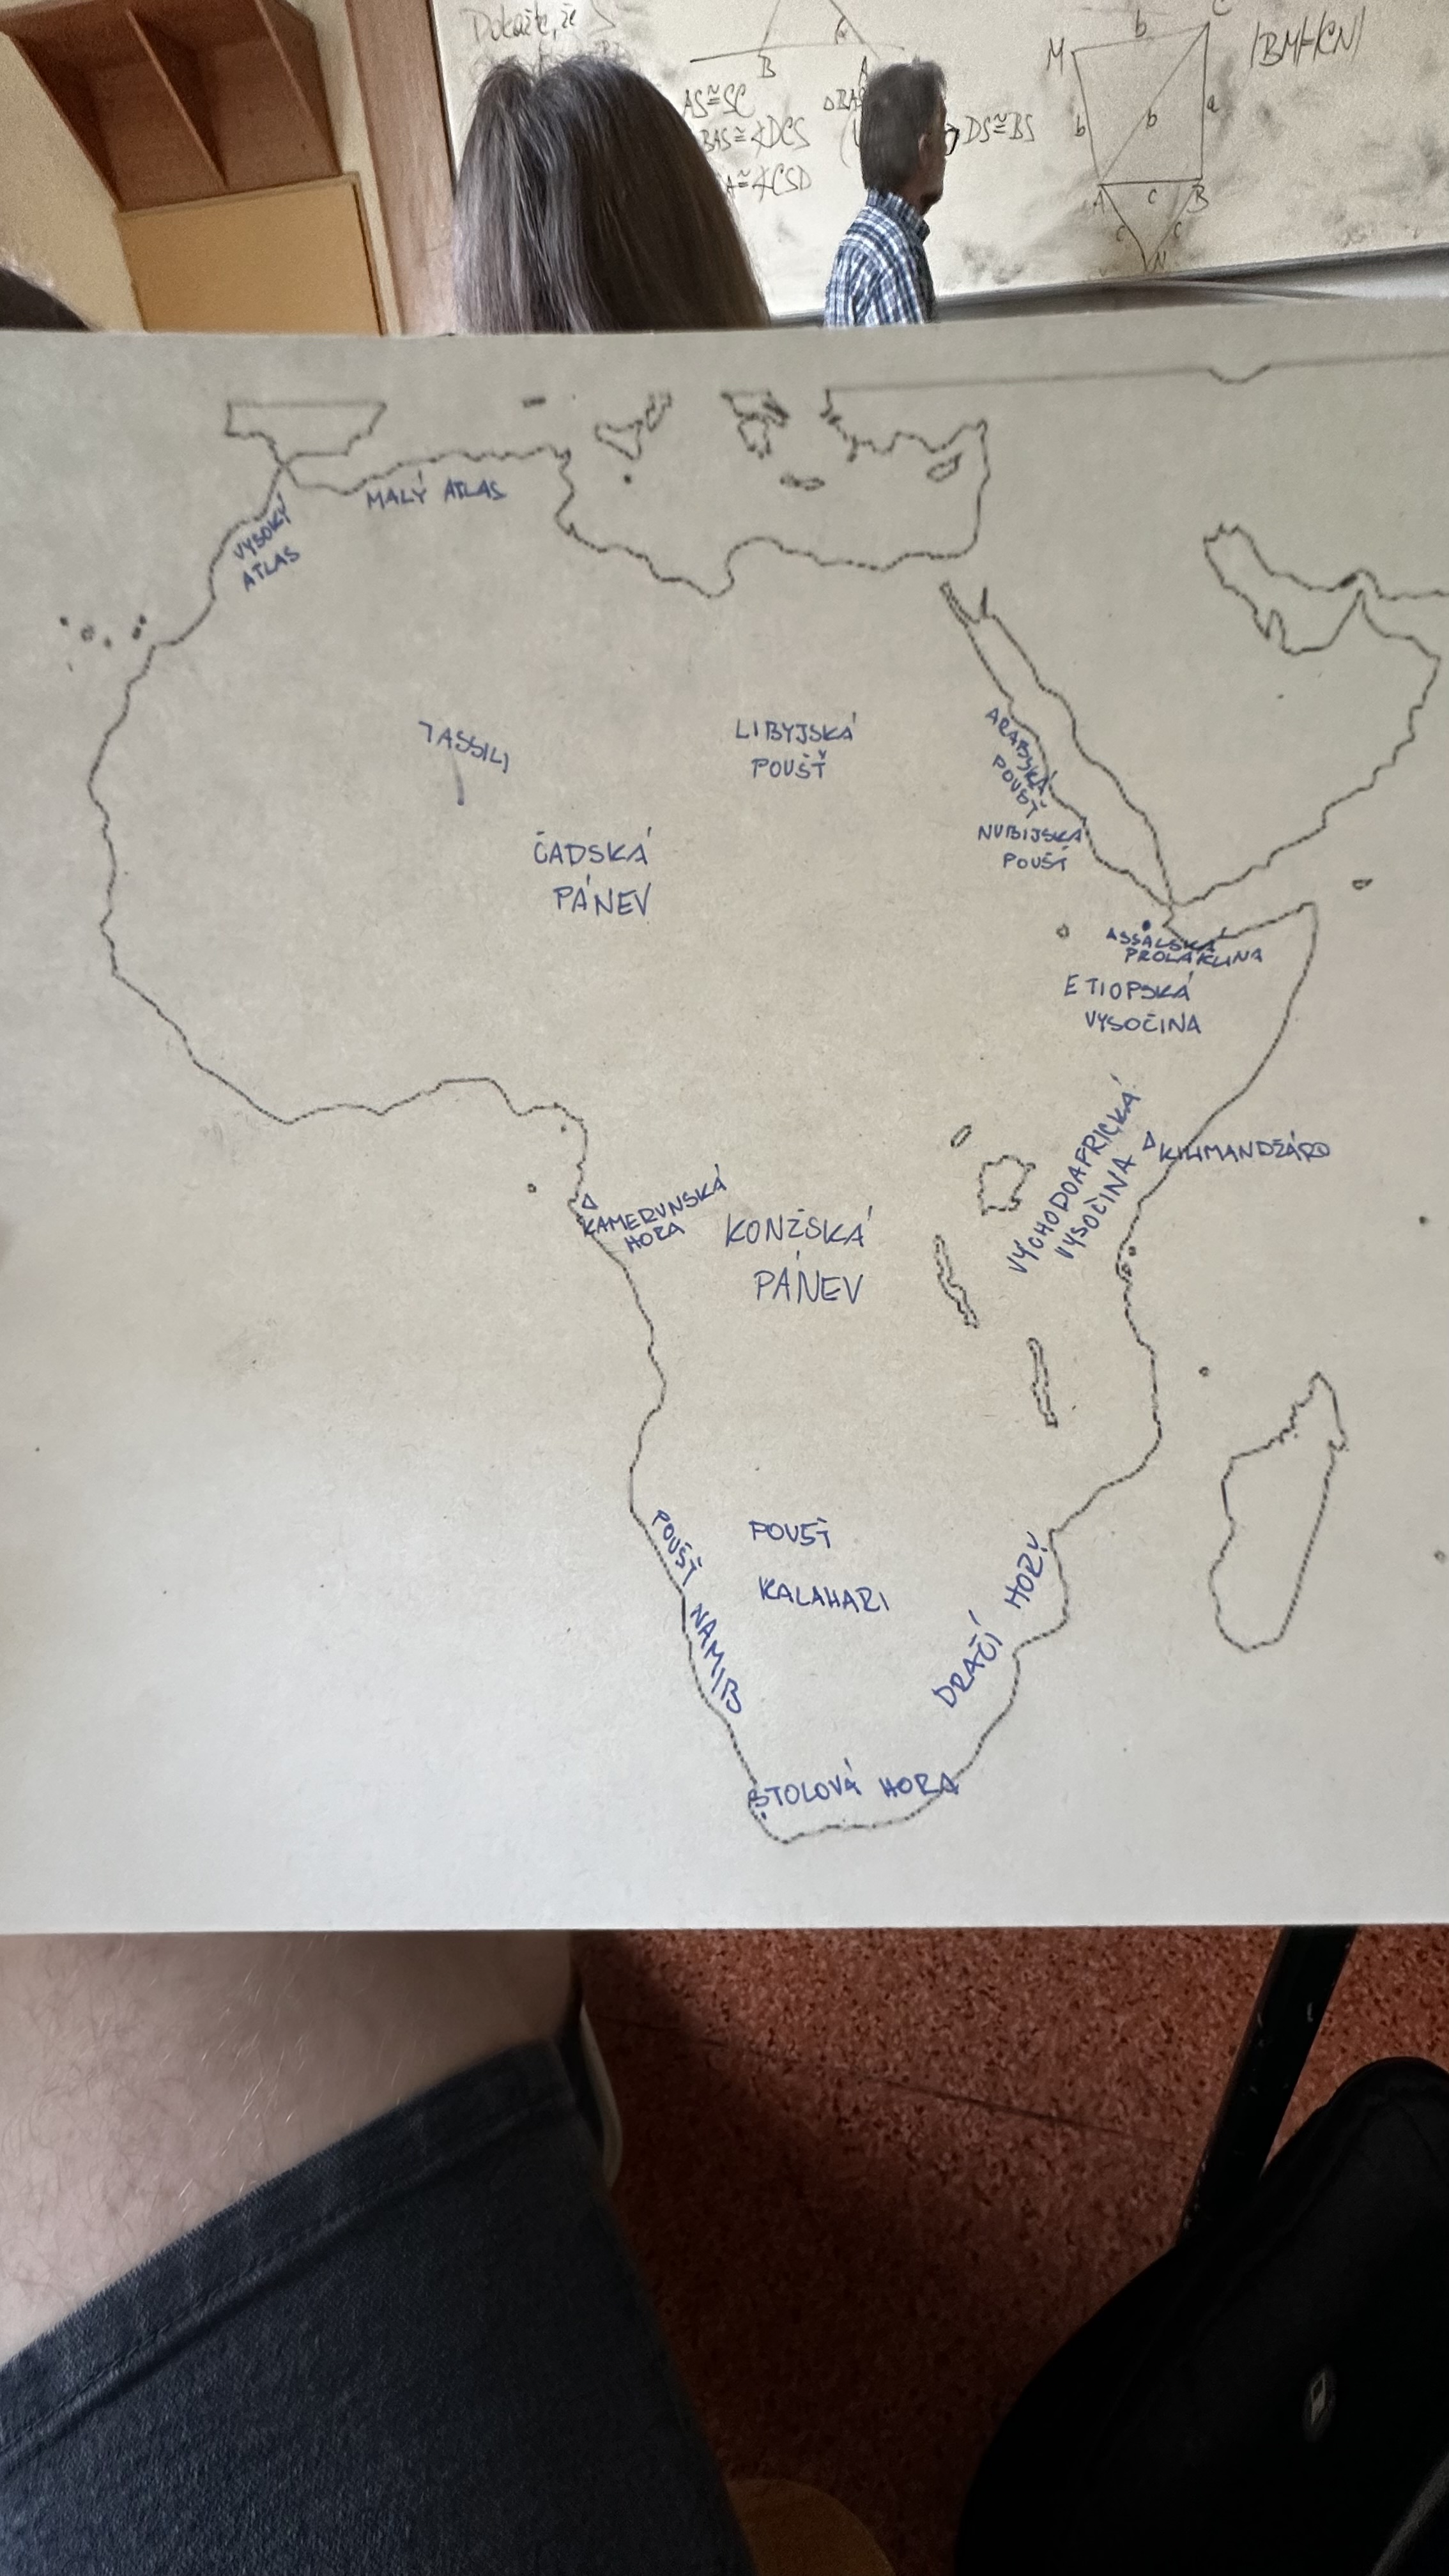 Dokažte, že
B
A
AS≅SC
BAS≅∢DCS
≅∢CSD
DS≅BS
M
b
C
|BM|=|CN|
b
b
a
A
c
B
c
c
N
MALÝ ATLAS
VYSOKÝ
ATLAS
TASSILI
LIBYJSKÁ
POUŠŤ
ARABSKÁ
POUŠŤ
NUBIJSKÁ
POUŠŤ
ČADSKÁ
PÁNEV
ASSALSKÁ
PROLÁKLINA
ETIOPSKÁ
VYSOČINA
VÝCHODOAFRICKÁ
VYSOČINA
KILIMANDŽÁRO
KAMERUNSKÁ
HORA
KONŽSKÁ
PÁNEV
POUŠŤ NAMIB
POUŠŤ
KALAHARI
DRAČÍ HORY
STOLOVÁ HORA